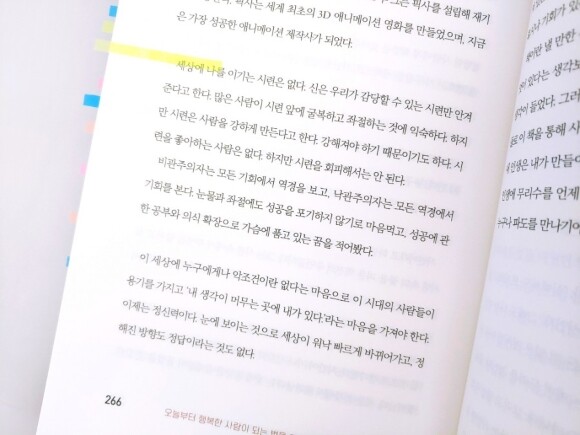 픽사는 세계 최초의 3D 애니메이션 영화를 만들었으며, 지금
은 가장 성공한 애니메이션 제작사가 되었다.
세상에 나를 이기는 시련은 없다. 신은 우리가 감당할 수 있는 시련만 안겨
준다고 한다. 많은 사람이 시련 앞에 굴복하고 좌절하는 것에 익숙하다. 하지
만 시련은 사람을 강하게 만든다고 한다. 강해져야 하기 때문이기도 하다. 시
련을 좋아하는 사람은 없다. 하지만 시련을 회피해서는 안 된다.
비관주의자는 모든 기회에서 역경을 보고, 낙관주의자는 모든 역경에서
기회를 본다. 눈물과 좌절에도 성공을 포기하지 않기로 마음먹고, 성공에 관
한 공부와 의식 확장으로 가슴에 품고 있는 꿈을 적어봤다.
이 세상에 누구에게나 악조건이란 없다는 마음으로 이 시대의 사람들이
용기를 가지고 '내 생각이 머무는 곳에 내가 있다'라는 마음을 가져야 한다.
이제는 정신력이다. 눈에 보이는 것으로 세상이 워낙 빠르게 바뀌어가고, 정
해진 방향도 정답이라는 것도 없다.
266
오늘부터 행복한 사람이 되는 법을
기회가
있다는 생각보
각이 들었다. 그러
이 책을 통해 사
인생은 내가 만들
무리수를 언제
누구나 파도를 만나기에